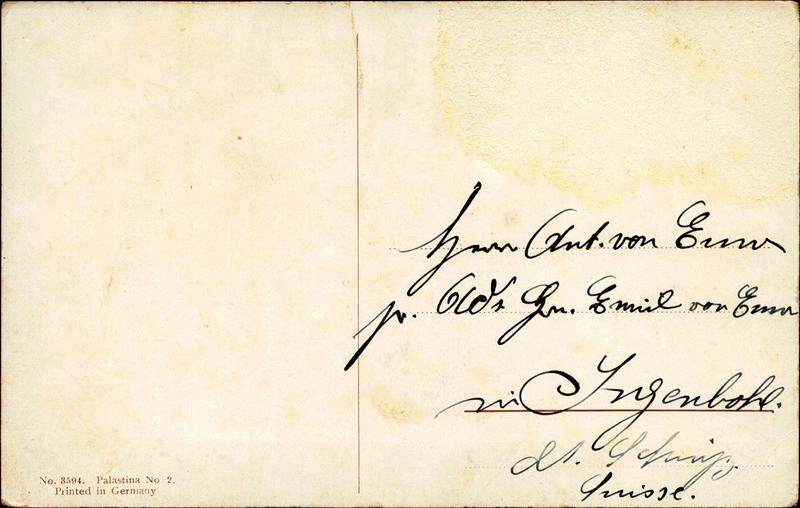 Herrn Ant. von Euw
pr. Ads Hrn. Emil von Euw
in Ingenbohl.
Kt. Schwyz.
Suisse.
No. 3594. Palästina No 2.
Printed in Germany